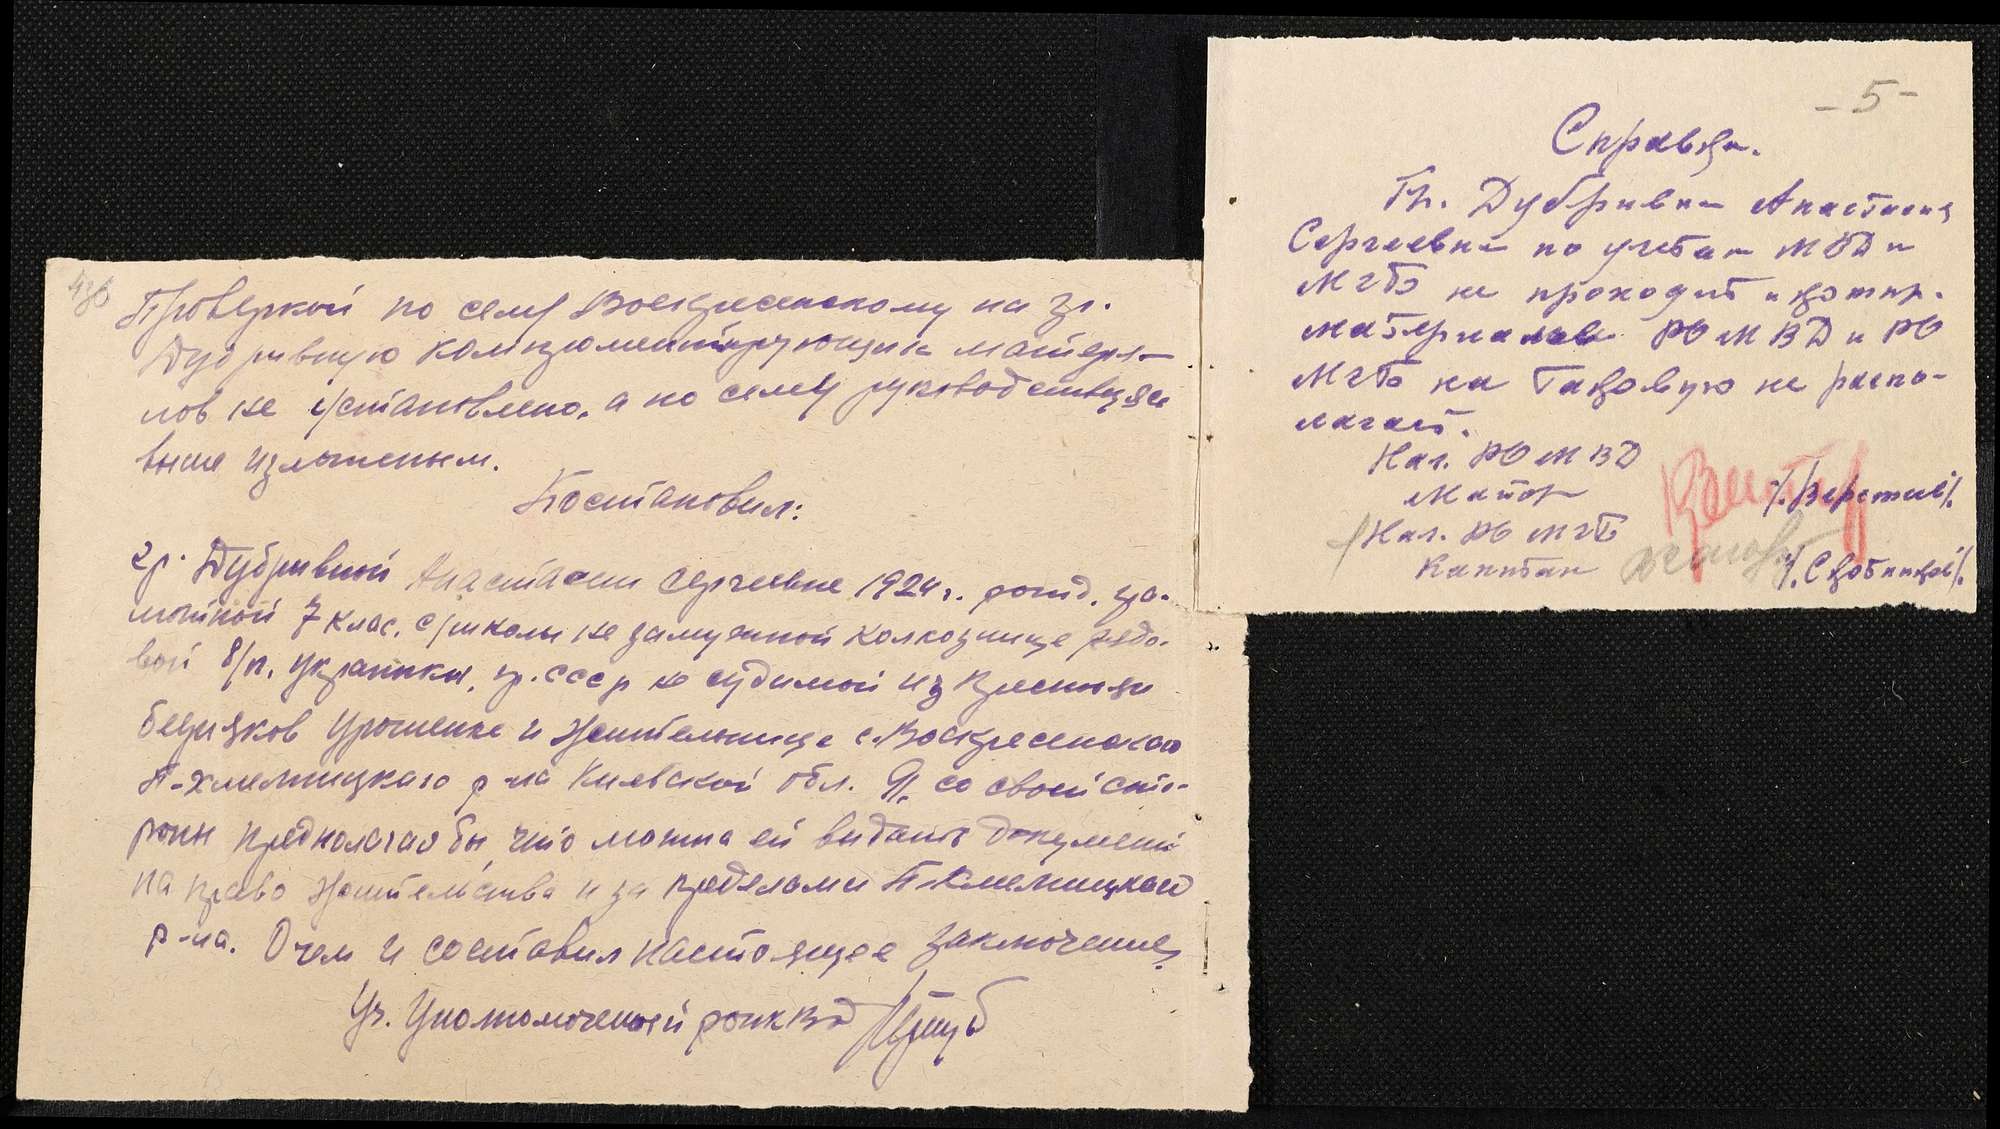 Проверкой по селу Воскресенскому на гр.
Дубривную компрометирующих матерья-
лов не установлено, а по сему руководствуясь
выше изложеным.
Постановил:
гр. Дубривной Анастасии Сергеевне 1924 г. рожд. гра-
мотной 7 клас. с/школы не замужной колхознице рядо-
вой б/п. украинки, гр. СССР не судимой из крестьян
бедняков урошенке и жительнице с. Воскресенского
П-Хмельницкаго р-на Киевской обл. Я, со своей сто-
роны предполагал бы, что можна ей видать документ
на право жительства и за пределами П-Хмельницкаго
р-на. О чем и составил настоящее заключение.
Уч. Уполномоченый
-5-
Справка.
Гр. Дубривная Анастасия
Сергеевна по учетам МВД и
МГБ не проходит и компр.
материалов РО МВД и РО
МГБ на таковую не распо-
лагает.
Нач. РО МВД
Майор
Нач. РО МГБ
Капитан